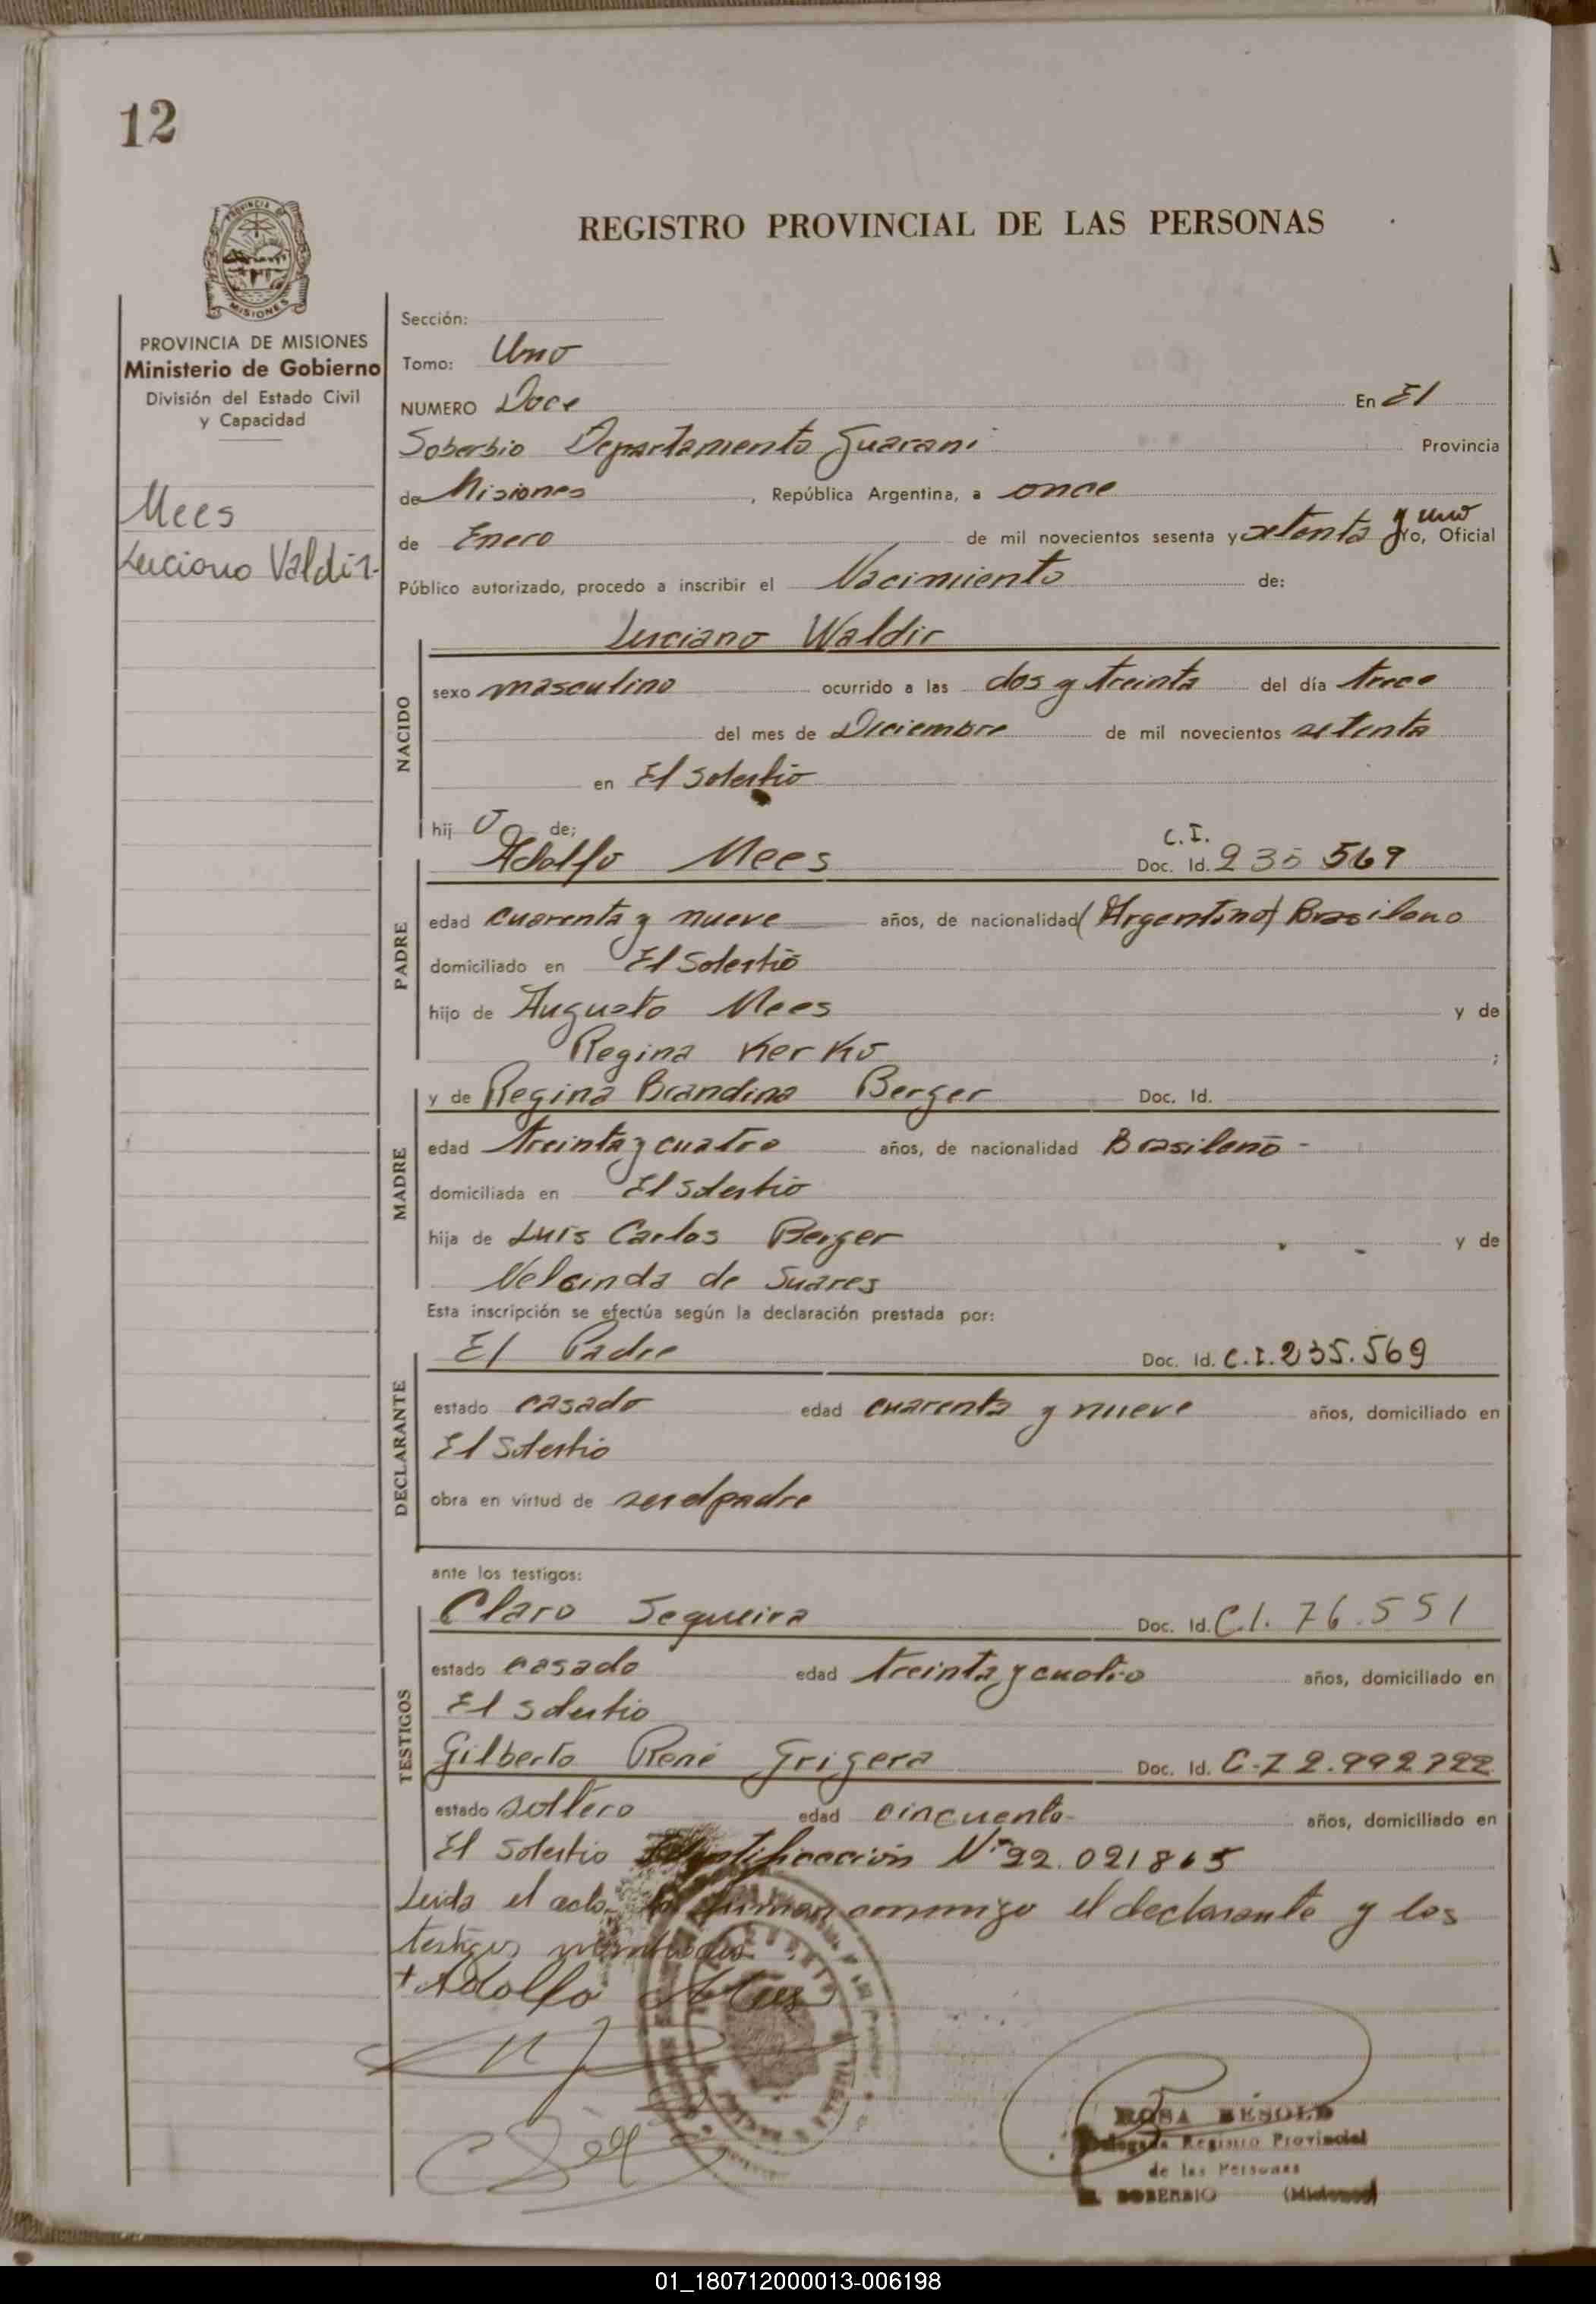 12
PROVINCIA DE
MISIONES
REGISTRO PROVINCIAL DE LAS PERSONAS
PROVINCIA DE MISIONES
Ministerio de Gobierno
División del Estado Civil
y Capacidad
Mees
Luciano Valdir-
Sección:
Tomo: Uno
NUMERO Doce En El
Soberbio Departamento Guarani Provincia
de Misiones, República Argentina, a once
de Enero de mil novecientos sesenta y setenta y uno yo, Oficial
Público autorizado, procedo a inscribir el Nacimiento de:
Luciano Waldir
NACIDO
sexo masculino ocurrido a las dos y treinta del día trece
del mes de Diciembre de mil novecientos setenta
en El Soberbio
hij o de;
Adolfo Mees C.I. Doc. Id. 235 569
PADRE
edad cuarenta y nueve años, de nacionalidad (Argentino) Brasileno
domiciliado en El Soberbio
hijo de Augusto Mees y de
Regina Kerko ;
y de Regina Brandina Berger Doc. Id.
MADRE
edad treinta y cuatro años, de nacionalidad Brasileno -
domiciliada en El Soberbio
hija de Luis Carlos Berger y de
de Suares
Esta inscripción se efectúa según la declaración prestada por:
El Padre Doc. Id. C.I. 235.569
DECLARANTE
estado casado edad cuarenta y nueve años, domiciliado en
El Soberbio
obra en virtud de ser el padre
ante los testigos:
Claro Sequeira Doc. Id. C.I. 76.551
TESTIGOS
estado casado edad treinta y cuatro años, domiciliado en
El Soberbio
Gilberto René Grigera Doc. Id. C.I 2.992722
estado soltero edad cincuenta- años, domiciliado en
El Soberbio Identificación Nº 22.021865
Leida el acta la firman conmigo el declarante y los
testigos nombrados.
+ Adolfo Mees
ROSA BESOLD
Delegada Registro Provincial
de las Personas
EL SOBERBIO (Misiones)
01_180712000013-006198